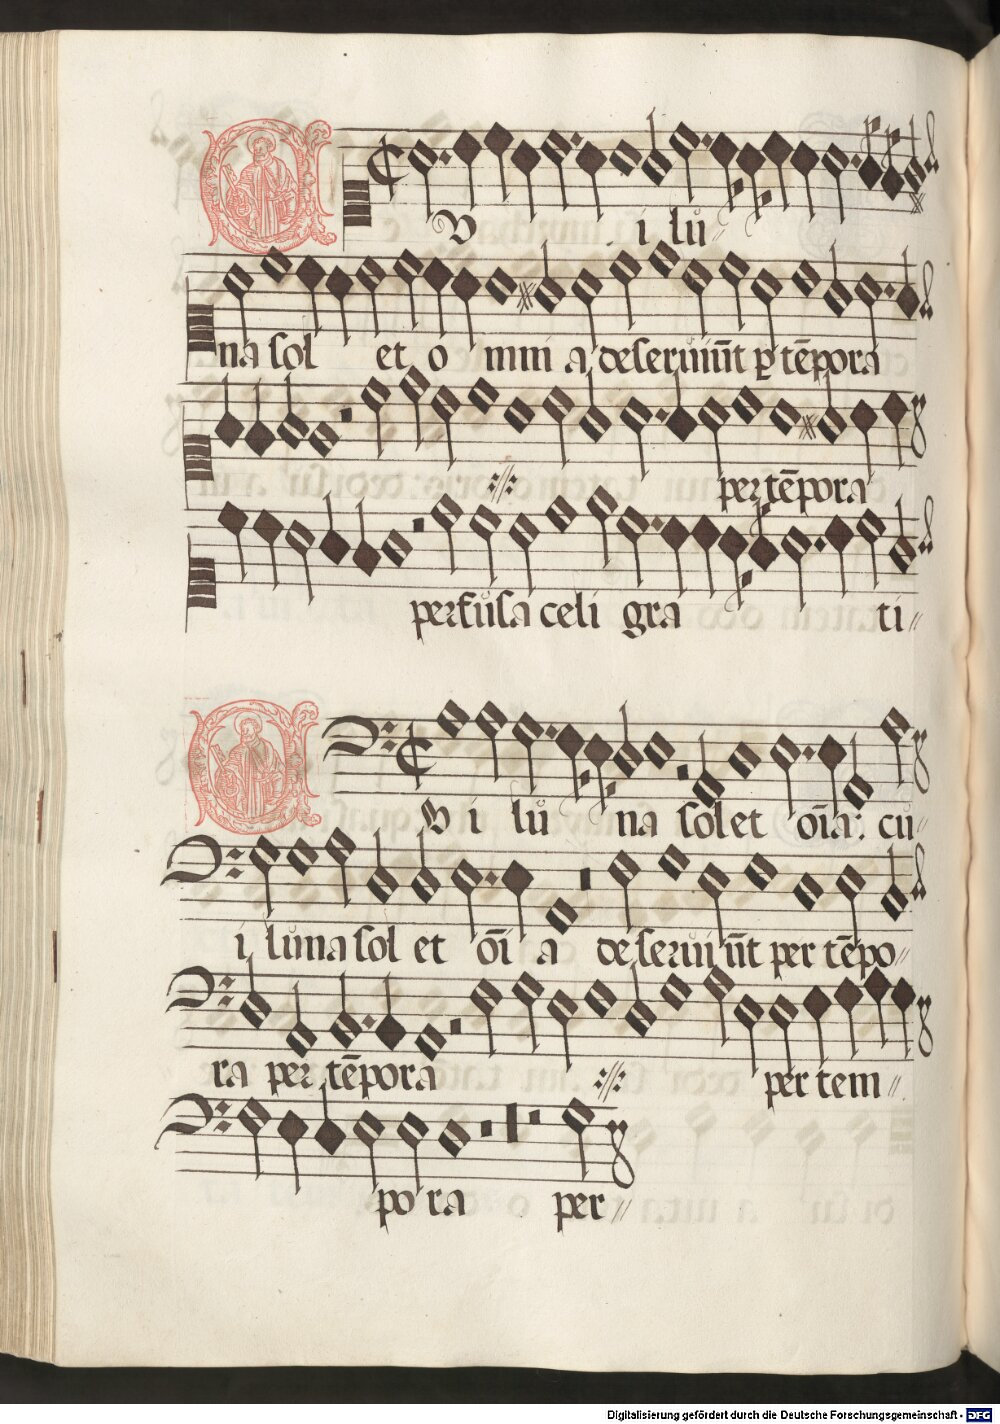 V i lu̇
na sol et o mni a deseruiūt ꝑ tēpora
per tēpora
perfusa celi gra ti
V i lu̇ na sol et oīa: cu̇
i luna sol et oī a deserui ūt per tēpo
ra per tēpora per tem
po ra per
Digitalisierung gefördert durch die Deutsche Forschungsgemeinschaft - DFG